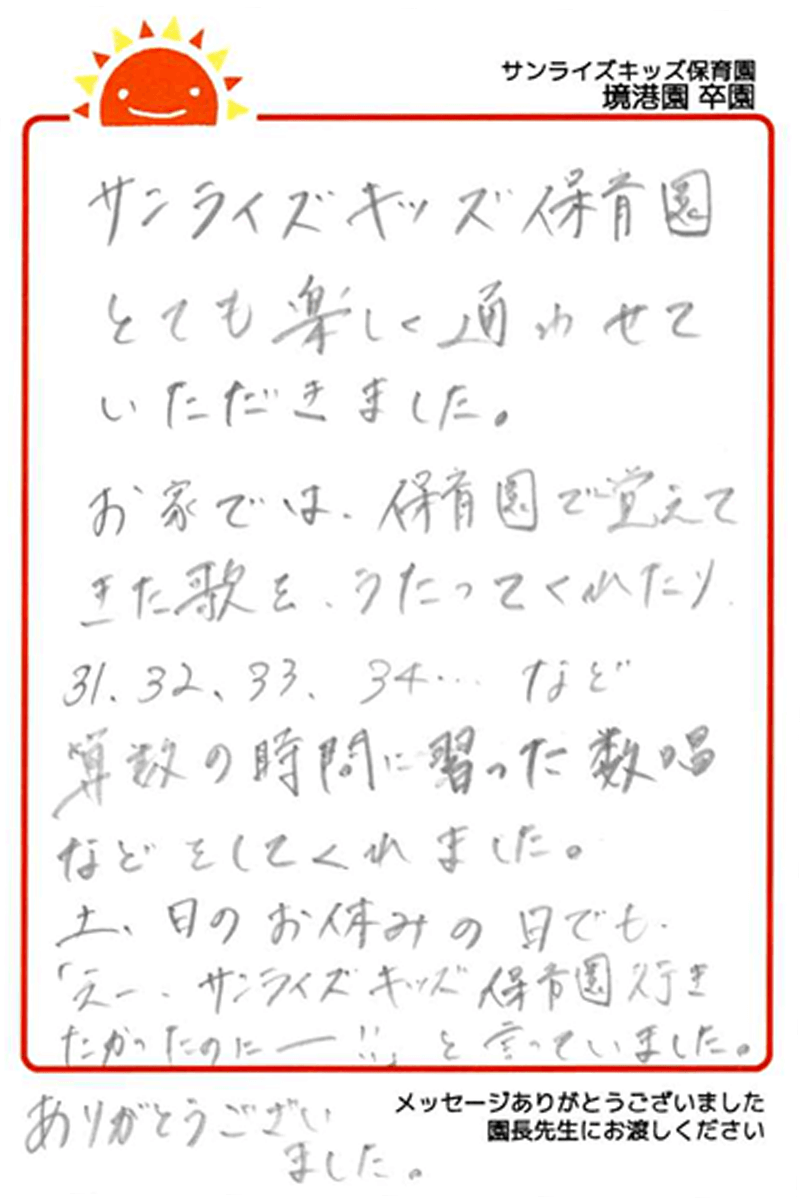 サンライズキッズ保育園
境港園 卒園
サンライズキッズ保育園
とても楽しく通わせて
いただきました。
お家では、保育園で覚えて
きた歌を、うたってくれたり、
31、32、33、34… など
算数の時間に習った数唱
などをしてくれました。
土、日のお休みの日でも、
「えー、サンライズキッズ保育園行き
たかったのにー!!」と言っていました。
ありがとうござい
ました。
メッセージありがとうございました
園長先生にお渡しください